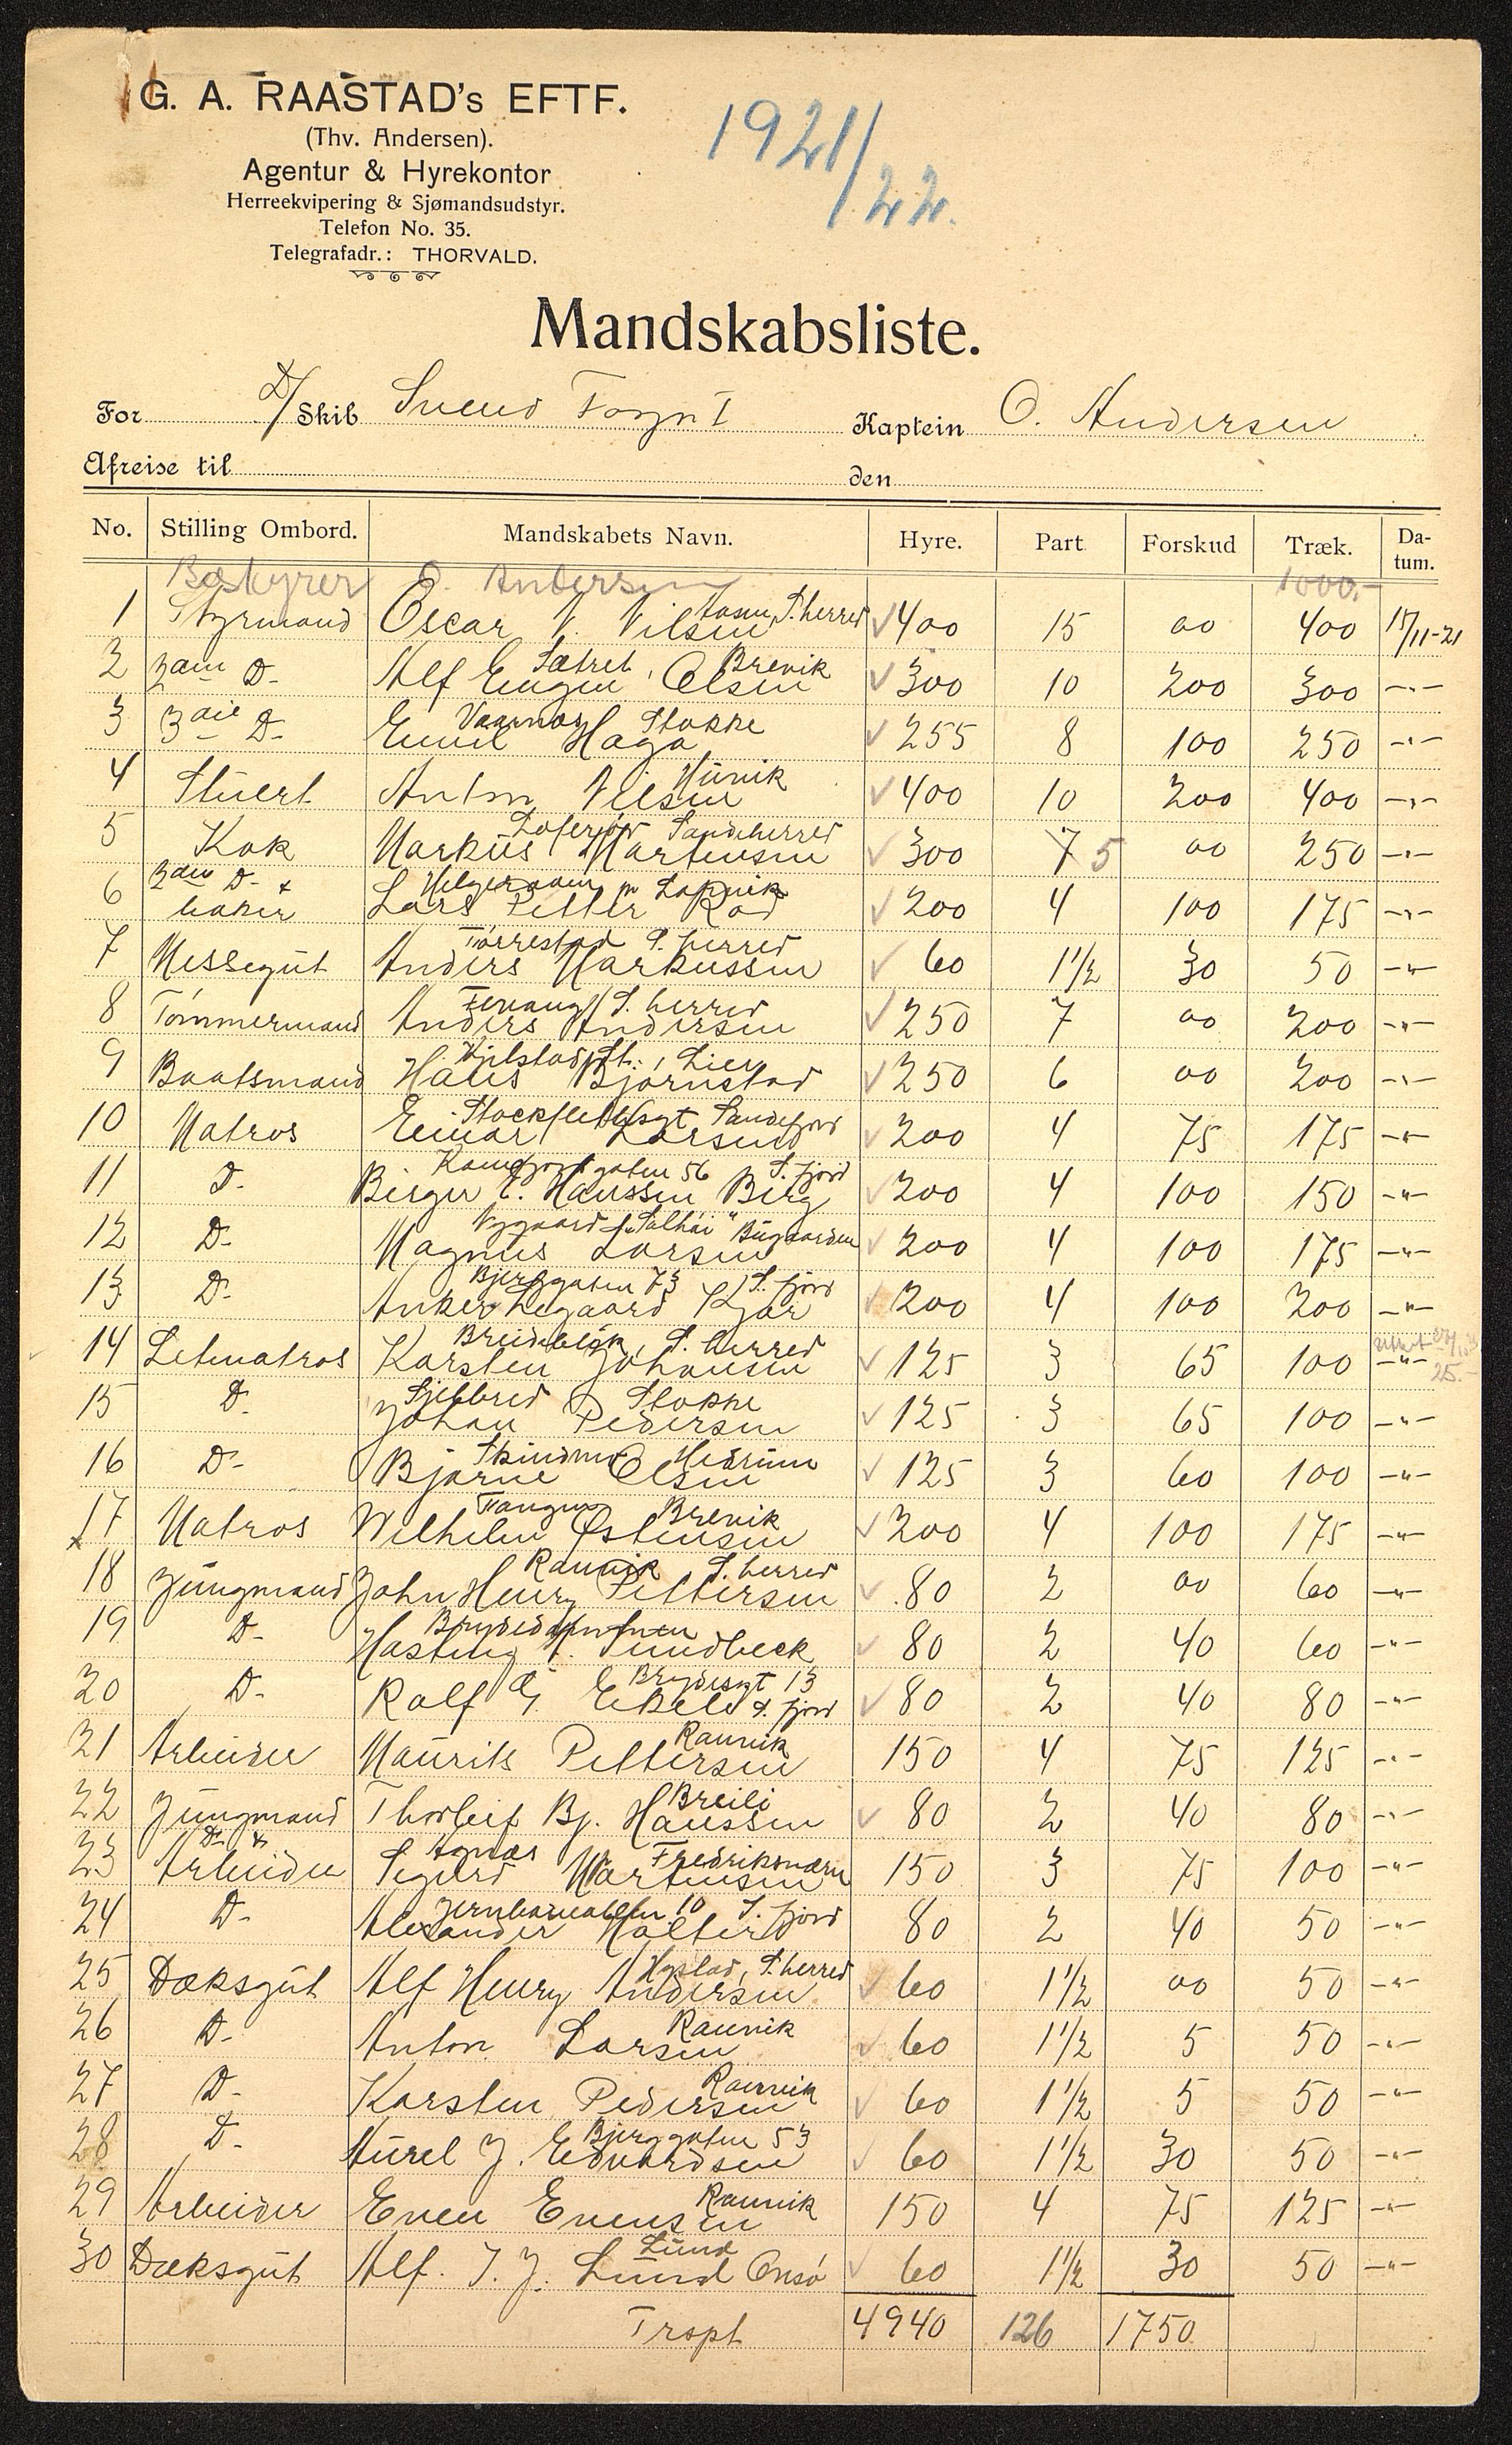 G. A. RAASTAD's EFTF.
(Thv. Andersen).
Agentur & Hyrekontor
Herreekvipering & Sjømandsudstyr.
Telefon No. 35.
Telegrafadr.: THORVALD.
1921/22.
Mandskabsliste.
For D/Skib Svend Foyn I Kaptein O. Andersen
Afreise til den
No. Stilling Ombord. Mandskabets Navn. Hyre. Part Forskud Træk. Da-tum.
Bestyrer O. Andersen 1000.-
Aasen, S.herred
1 Styrmand Oscar N. Nilsen 400 15 00 400 15/11-21
Sætret, Brevik
2 2den D- Alf Eugen Olsen 300 10 200 300 -"-
Vaarnæs Stokke
3 3die D- Emil Haga 255 8 100 250 -"-
Hunik
4 Stuert Anton Nilsen 400 10 200 400 -"-
Sandeherred
5 Kok Markus Martensen 300 7 5 00 250 -"-
Helgeroaen pr Larvik
6 2den D- & baker Lars Petter Rød 200 4 100 175 -"-
Tørrestad S. herred
7 Messegut Anders Markussen 60 1 1/2 30 50 -"-
Fevang S. herred
8 Tømmermand Anders Andersen 250 7 00 200 -"-
St., Lier
9 Baatsmand Hans Bjørnstad 250 6 00 200 -"-
Stockflethsgt Sandefjord
10 Matros Einar Larsen 200 4 75 175 -"-
Kamfjordgaten 56 S. fjord
11 D- Birger E. Hanssen Berg 200 4 100 150 -"-
Nygaard "Solhøi" Bugaarden
12 D- Magnus Larsen 200 4 100 175 -"-
Bjerggaten 73 S. fjord
13 D- Anker Kjær 200 4 100 200 -"-
Breidablik, S. herred
14 Letmatros Karsten Johansen 125 3 65 100 -"- 25.-
Stokke
15 D- Johan Pedersen 125 3 65 100 -"-
Hedrum
16 D- Bjarne Olsen 125 3 60 100 -"-
Tangen Brevik
17 Matros Wilhelm Østensen 200 4 100 175 -"-
Raunik S. herred
18 Jungmand John Henry Pettersen 80 2 00 60 -"-
19 D- Hasting Sundbeck 80 2 40 60 -"-
Brydesgt 13
20 D- Rolf G. Ekeli S. fjord 80 2 40 80 -"-
Raunik
21 Arbeider Maurits Pettersen 150 4 75 125 -"-
Breili
22 Jungmand Thorleif Bj. Hanssen 80 2 40 80 -"-
Agnæs Fredriksværn
23 D- & Arbeider Sigurd Martensen 150 3 75 100 -"-
Jernbanealleen 10 S. fjord
24 D- Alexander Holter 80 2 40 50 -"-
Hystad, S. herred
25 Dæksgut Alf Henry Andersen 60 1 1/2 00 50 -"-
Raunik
26 D- Anton Larsen 60 1 1/2 5 50 -"-
Raunik
27 D- Karsten Pedersen 60 1 1/2 5 50 -"-
Bjerggaten 53
28 D- Aurel J. Edvardsen 60 1 1/2 30 50 -"-
Raunik
29 Arbeider Even Evensen 150 4 75 125 -"-
Lund
30 Dæksgut Alf. J. J. Lund Onsø 60 1 1/2 30 50 -"-
Trspt 4940 126 1750